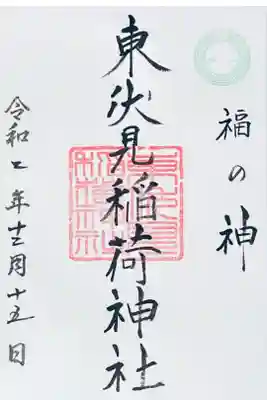 福の神
東伏見稲荷神社
令和年十二月十五日